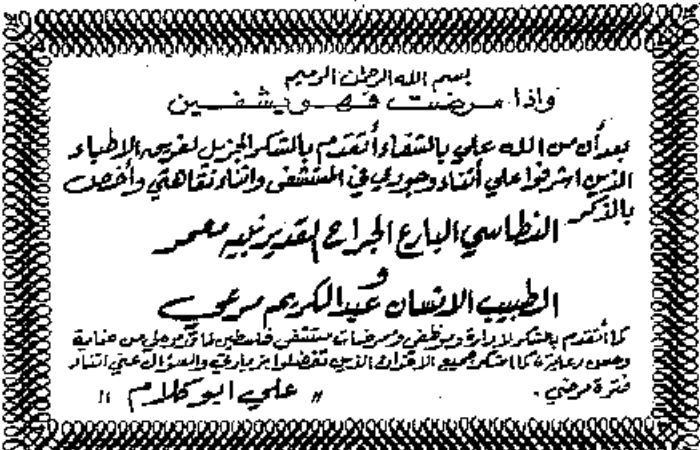 بسم الله الرحمن الرحيم
وإذا مرضت فهو يشفين
بعد أن من الله علي بالشفاء أتقدم بالشكر الجزيل لفريق الاطباء
الذين اشرفوا علي أثناء وجودي في المستشفى واثناء نقاهتي وأخص
بالذكر
النطاسي البارع الجراح القدير نبيه معمر
و
الطبيب الانسان عبد الكريم مرعي
كما أتقدم بالشكر لإدارة وموظفي وممرضات مستشفى فلسطين لما من عناية
وحسن رعاية كما اشكر جميع الذين تفضلوا بزيارتي والسؤال عني اثناء
فترة مرضي .
" علي ابو كلام "